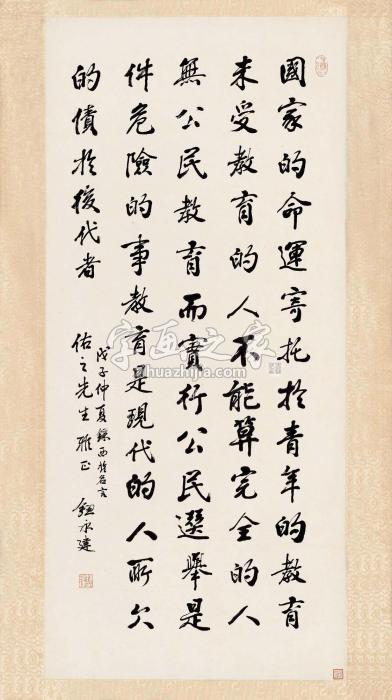 國家的命運寄托於青年的教育
未受教育的人不能算完全的人
無公民教育而實行公民選舉是
件危險的事教育是現代的人所欠
的債於後代者
戊子仲夏錄西哲名言
佑之先生雅正
鈕永建
字画之家
huazhijia.com